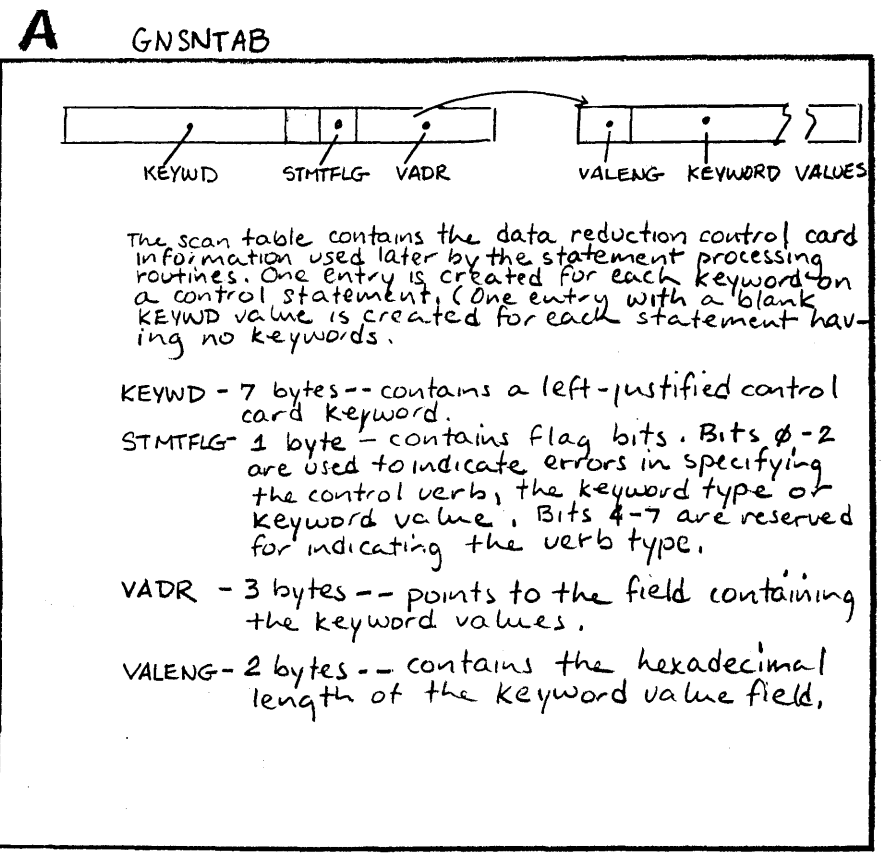 A GNSNTAB
KEYWD STMTFLG VADR VALENG KEYWORD VALUES
The scan table contains the data reduction control card
information used later by the statement processing
routines. One entry is created for each keyword on
a control statement. (One entry with a blank
KEYWD value is created for each statement hav-
ing no keywords.
KEYWD - 7 bytes -- contains a left-justified control
card keyword.
STMTFLG- 1 byte - contains flag bits. Bits 0-2
are used to indicate errors in specifying
the control verb, the keyword type or
keyword value. Bits 4-7 are reserved
for indicating the verb type.
VADR - 3 bytes -- points to the field containing
the keyword values.
VALENG- 2 bytes -- contains the hexadecimal
length of the keyword value field.